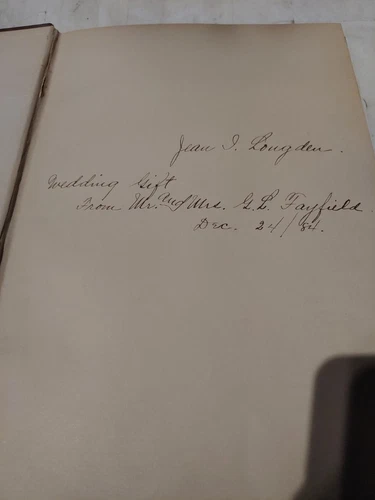 Jean I. Longden.
Wedding Gift
From Mr. and Mrs. G. L. Fayfield
Dec. 24/84.